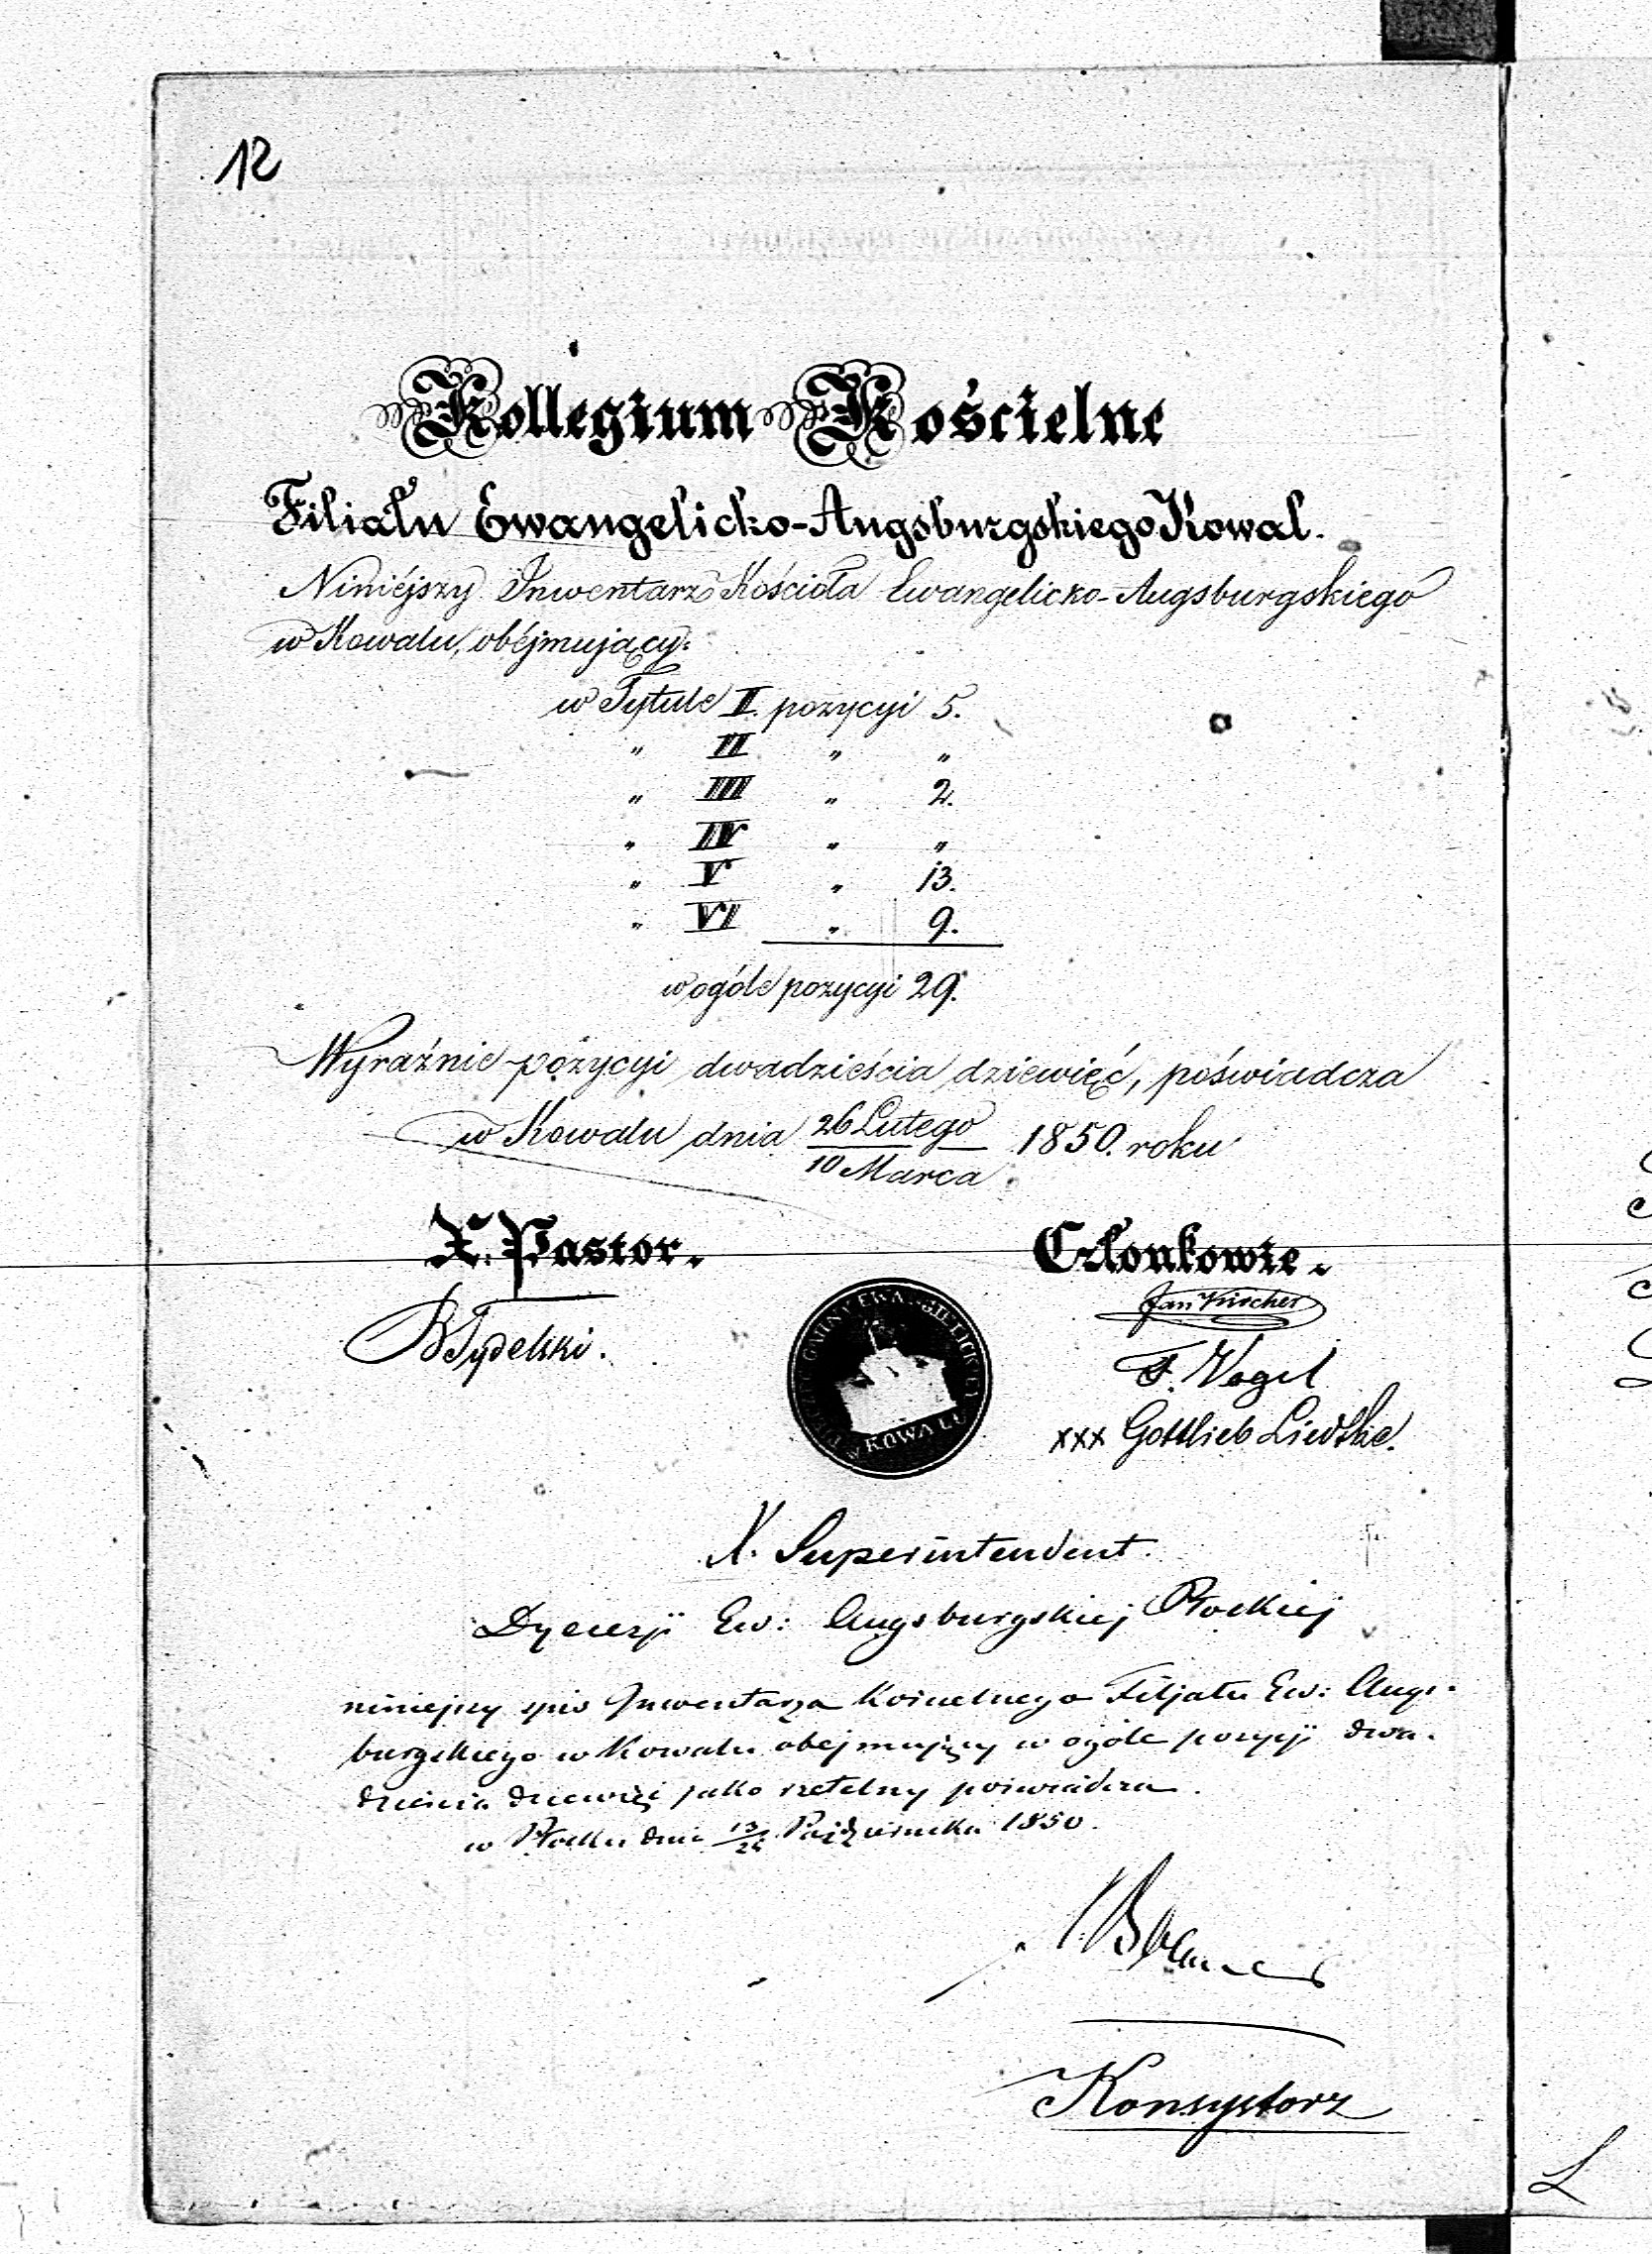 12
Kollegium Kościelne
Filiału Ewangelicko-Augsburgskiego Kowal.
Niniéjszy Inwentarz Kościoła Ewangelicko-Augsburgskiego
w Kowalu, obéjmujący:
w Tytule I. pozycyi 5.
" II " "
" III " 2.
" IV " "
" V " 13.
" VI " 9.
w ogóle pozycyi 29.
Wyraźnie pozycyi dwadzieścia dziewięć, poświadcza
w Kowalu dnia 26 Lutego / 10 Marca 1850. roku
X. Pastor. Członkowie.
Jan Kirscher
BTydelski.
F. Vogel
xxx Gottlieb Liedtke.
W KOWALU
X. Superintendent.
Dyecezji Ew: Augsburgskiej Płockiej
niniejszy spis Inwentarza Kościelnego Filjału Ew: Augs-
burgskiego w Kowalu obejmujący w ogóle pozycji dwa-
dzieścia dziewięć jako rzetelny poświadcza.
w Płocku dnia Października 1850.
Konsystorz
L